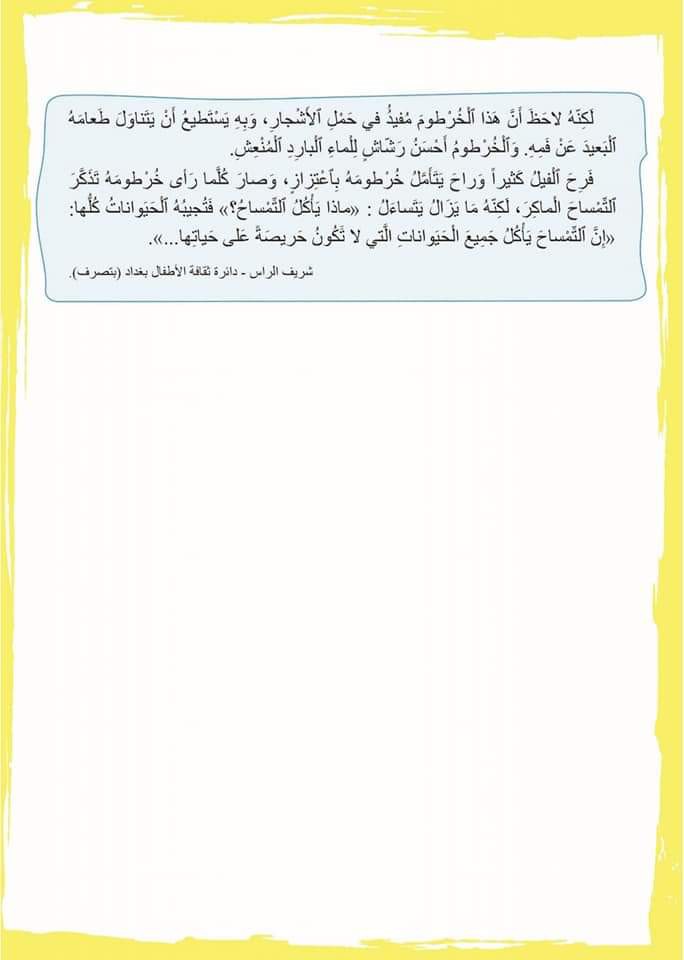 لَكِنَّهُ لاحَظَ أَنَّ هَذا ٱلْخُرْطومَ مُفيدٌ في حَمْلِ ٱلْأَشْجارِ، وَبِهِ يَسْتَطيعُ أَنْ يَتَناوَلَ طَعامَهُ
ٱلْبَعيدَ عَنْ فَمِهِ. وَٱلْخُرْطومُ أَحْسَنُ رَشّاشٍ لِلْماءِ ٱلْبارِدِ ٱلْمُنْعِشِ.
فَرِحَ ٱلْفيلُ كَثيراً وَراحَ يَتَأَمَّلُ خُرْطومَهُ بِٱعْتِزازٍ، وَصارَ كُلَّما رَأى خُرْطومَهُ تَذَكَّرَ
ٱلتِّمْساحَ الْماكِرَ، لَكِنَّهُ مَا يَزَالُ يَتَساءَلُ : «ماذا يَأْكُلُ ٱلتِّمْساحُ؟» فَتُجيبُهُ ٱلْحَيَواناتُ كُلُّها:
«إِنَّ ٱلتِّمْساحَ يَأْكُلُ جَميعَ الْحَيَواناتِ الَّتي لا تَكُونُ حَريصَةً عَلى حَياتِها...».
شريف الراس - دائرة ثقافة الأطفال بغداد (بتصرف).